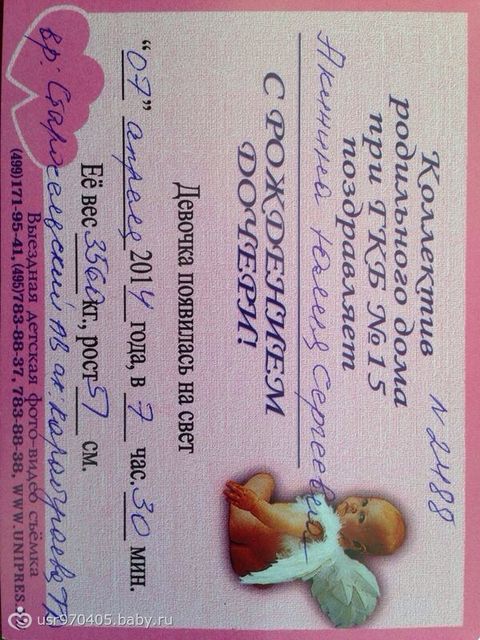 Коллектив
родильного дома
при ГКБ №15
поздравляет
N 2488
Юлия Сергеевна
С РОЖДЕНИЕМ
ДОЧЕРИ!
Девочка появилась на свет
“07” апреля 2014 года, в 7 час. 30 мин.
Её вес 3560 кг., рост 51 см.
вр: АВ ак:
Выездная детская фото-видео съёмка
(499)171-95-41, (495)783-88-37, 783-88-38, WWW.UNIPRES
usr970405.baby.ru